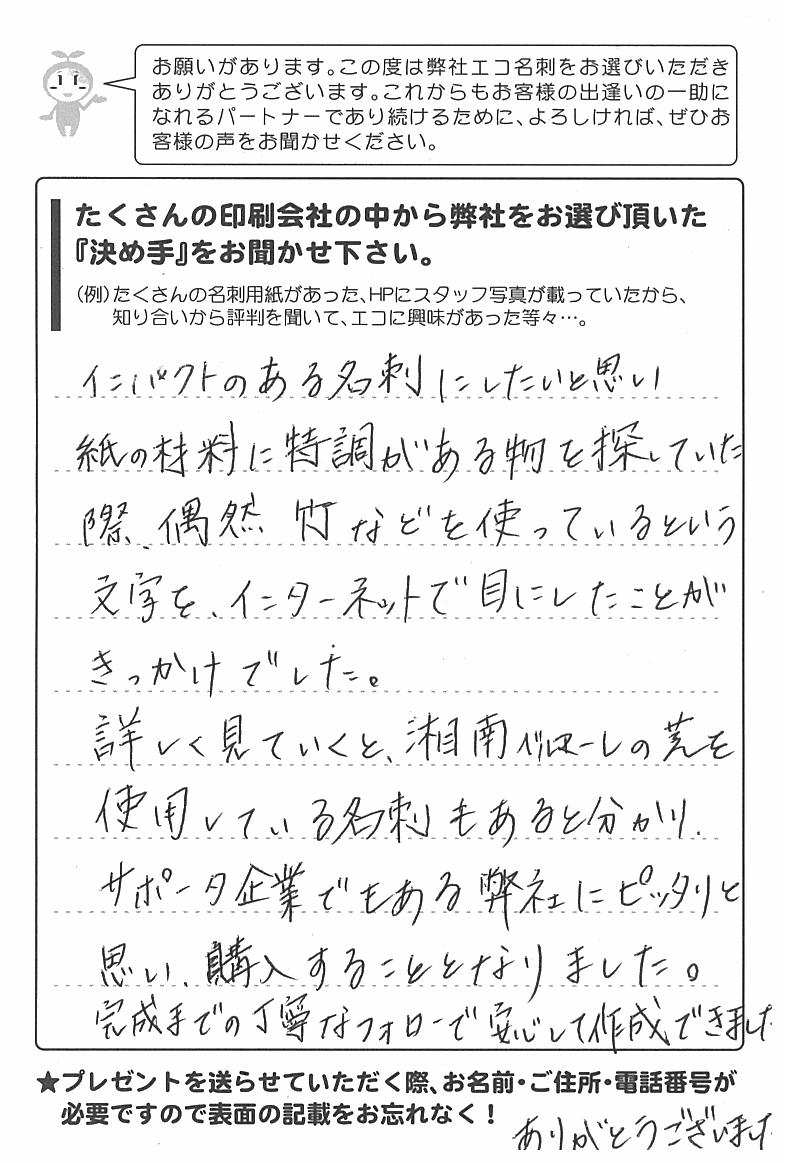 お願いがあります。この度は弊社エコ名刺をお選びいただき
ありがとうございます。これからもお客様の出逢いの一助に
なれるパートナーであり続けるために、よろしければ、ぜひお
客様の声をお聞かせください。
たくさんの印刷会社の中から弊社をお選び頂いた
『決め手』をお聞かせ下さい。
(例)たくさんの名刺用紙があった、HPにスタッフ写真が載っていたから、
知り合いから評判を聞いて、エコに興味があった等々…。
インパクトのある名刺にしたいと思い
紙の材料に特調がある物を探していた
際、偶然 竹などを使っているという
文字を、インターネットで目にしたことが
きっかけでした。
詳しく見ていくと、湘南ベルマーレの芝を
使用している名刺もあると分かり、
サポータ企業でもある弊社にピッタリと
思い、購入することとなりました。
完成までの丁寧なフォローで安心して作成できました
★プレゼントを送らせていただく際、お名前・ご住所・電話番号が
必要ですので表面の記載をお忘れなく！
ありがとうございました